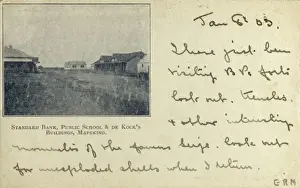 Jan 6th 03
I have just been
visiting B.P's forts
look out. trenches
& other interesting
memories of the famous siege. Look out
for unexploded shells when I return.
G R M
STANDARD BANK, PUBLIC SCHOOL & DE KOCK'S
BUILDINGS, MAFEKING.